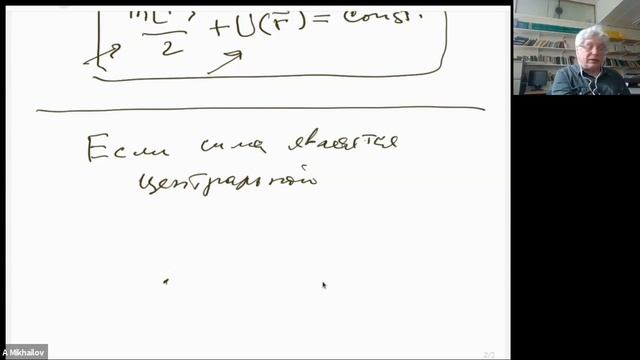 m(
—— + U(r̄) = const.
2
Если сила является
центральной
A Mikhailov
2/3